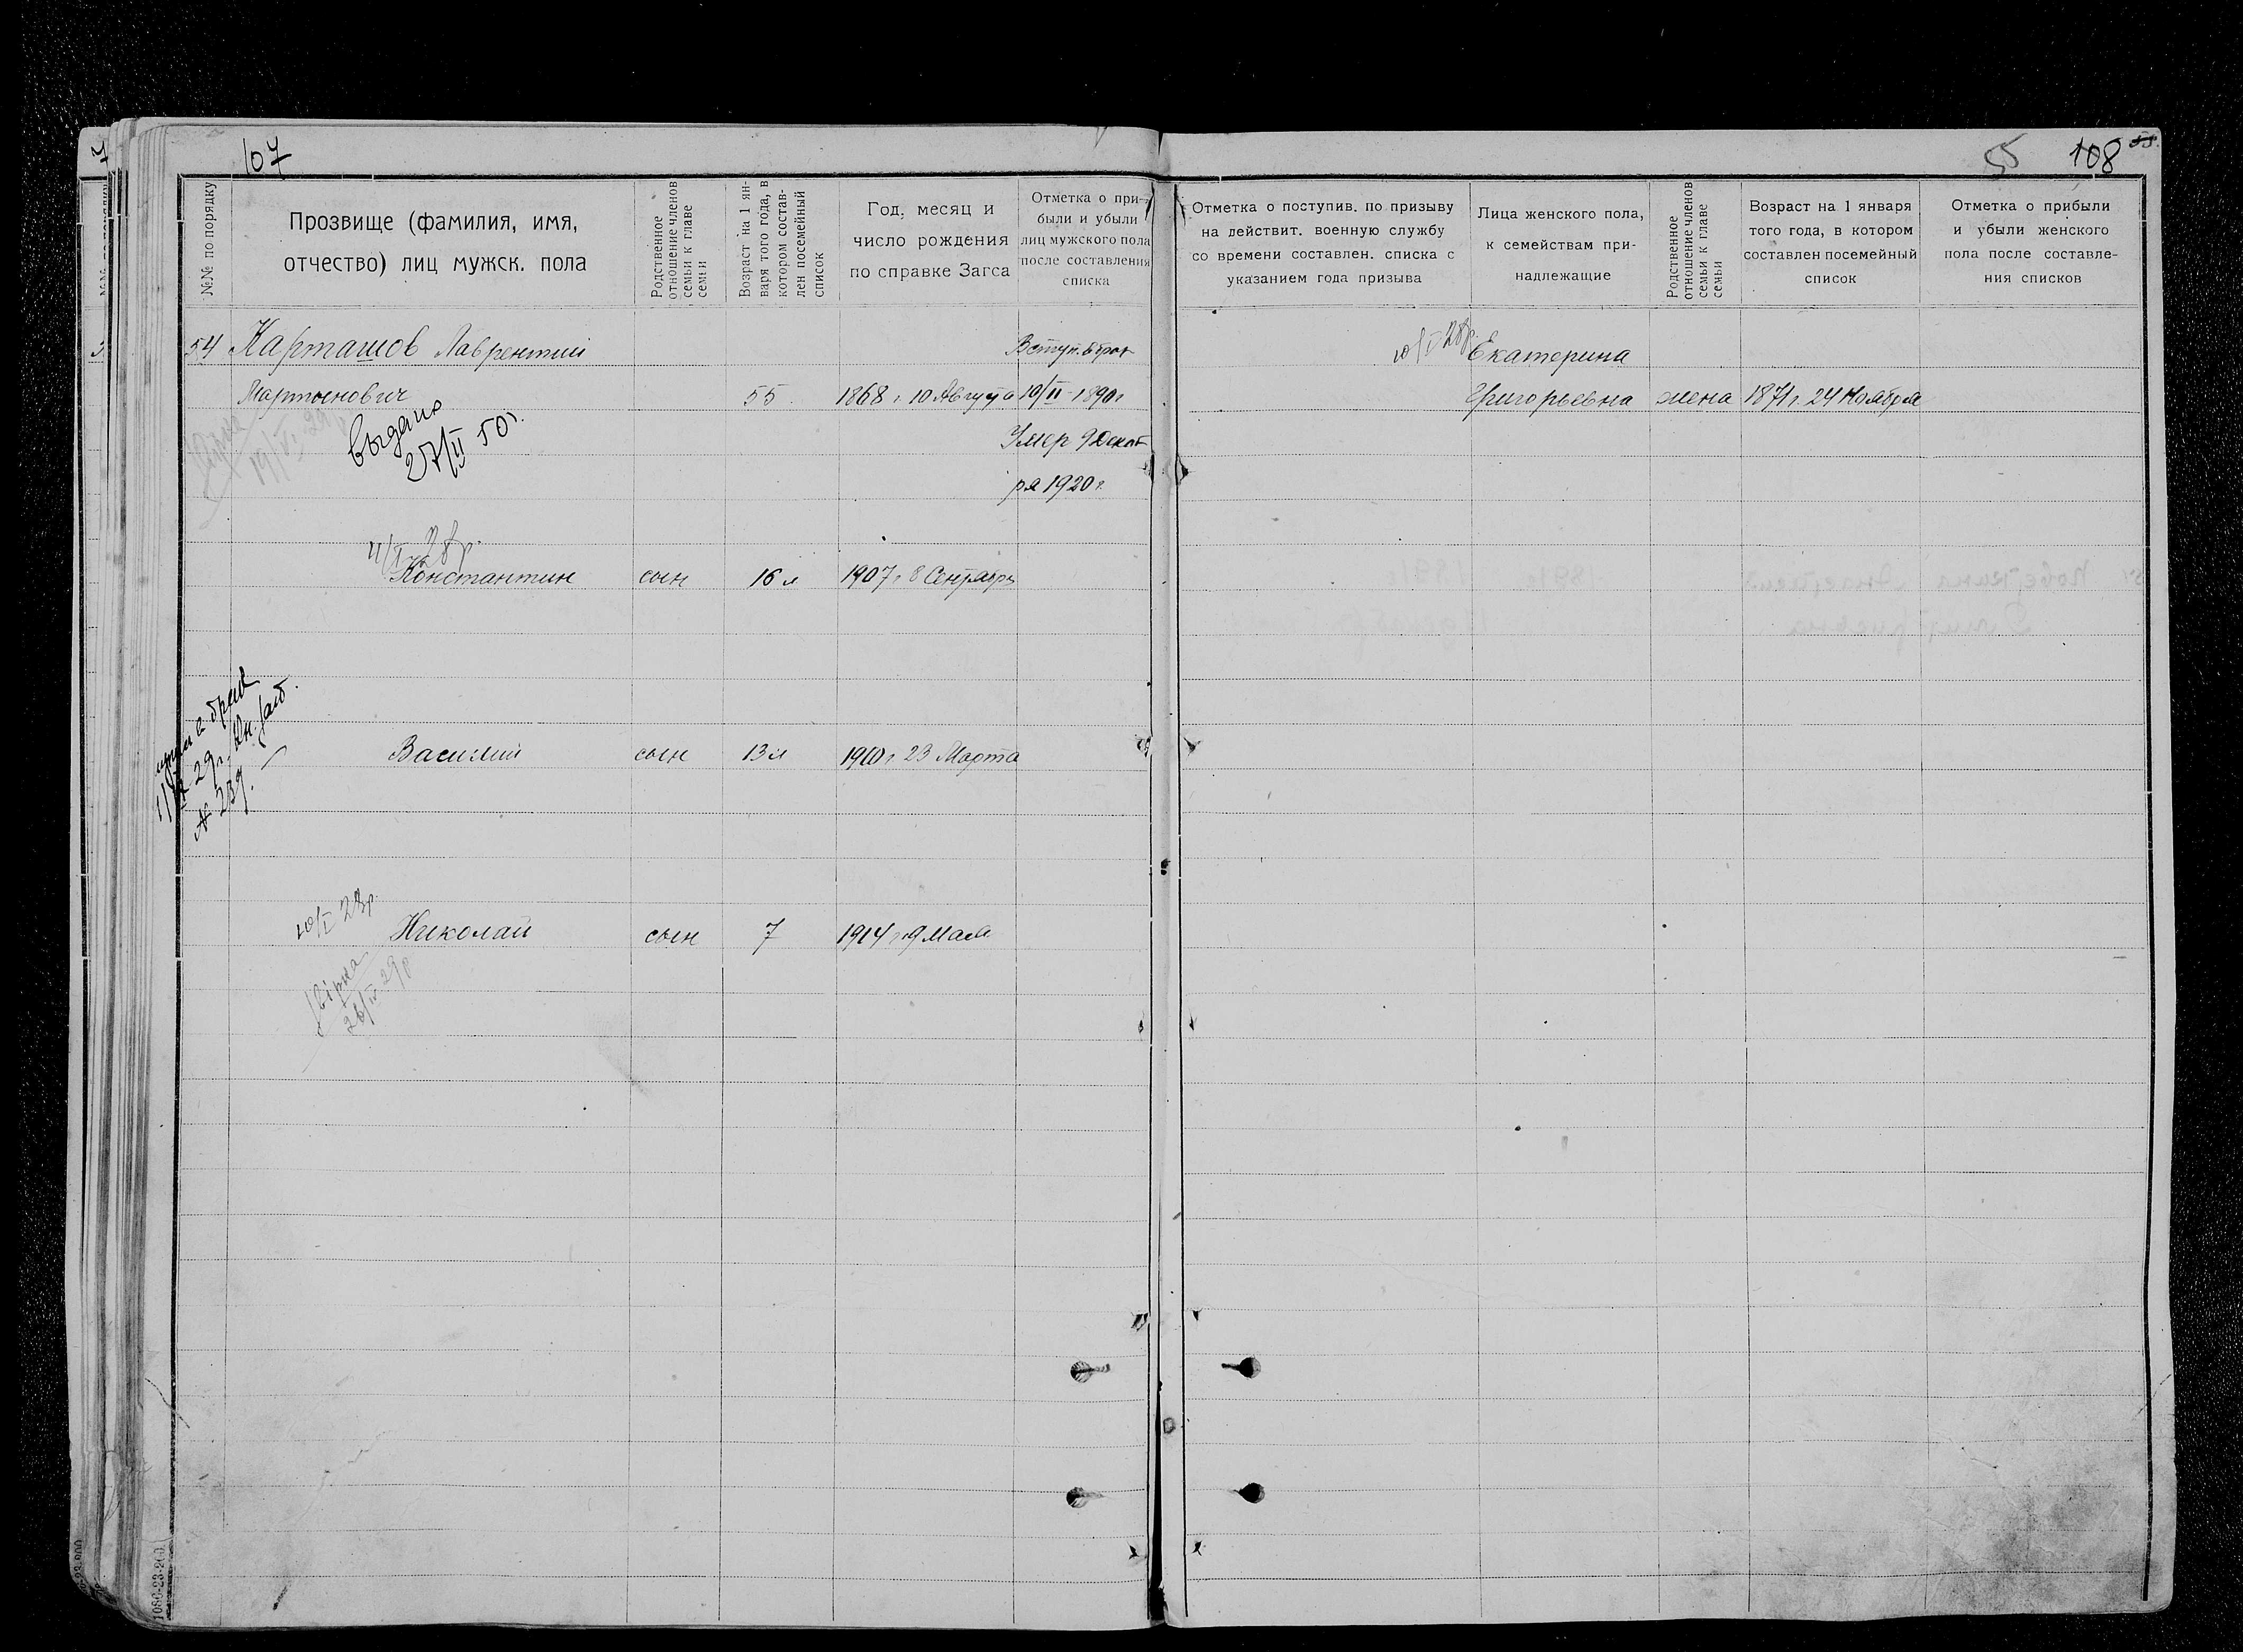 107
№№ по порядку
Прозвище (фамилия, имя,
отчество) лиц мужск. пола
Родственное
отношение членов
семьи к главе
семьи
Возраст на 1 ян-
варя того года, в
котором состав-
лен посемейный
список
Год, месяц и
число рождения
по справке Загса
Отметка о при-
были и убыли
лиц мужского пола
после составления
списка
54 Карташов Лаврентий
Вступ. в брак
Мартынович 55 1868 г. 10 Августа 10/II-1890 г
выдано
27/II 50 г.
Умер 9 Декаб
ря 1920 г.
11/I 28 р.
Константин сын 16 л 1907 г 8 Сентябрь
29 г.
№ 239.
Василий сын 13 л 1910 г 23 Марта
20/I 28 р.
Николай сын 7 1914 г. 9 Мая
звірка
26/IV 29 р
1086-23-200
55 108
Отметка о поступив. по призыву
на действит. военную службу
со времени составлен. списка с
указанием года призыва
Лица женского пола,
к семействам при-
надлежащие
Родственное
отношение членов
семьи к главе
семьи
Возраст на 1 января
того года, в котором
составлен посемейный
список
Отметка о прибыли
и убыли женского
пола после составле-
ния списков
28 р.
Екатерина
Григорьевна жена 1871 г. 24 Ноября